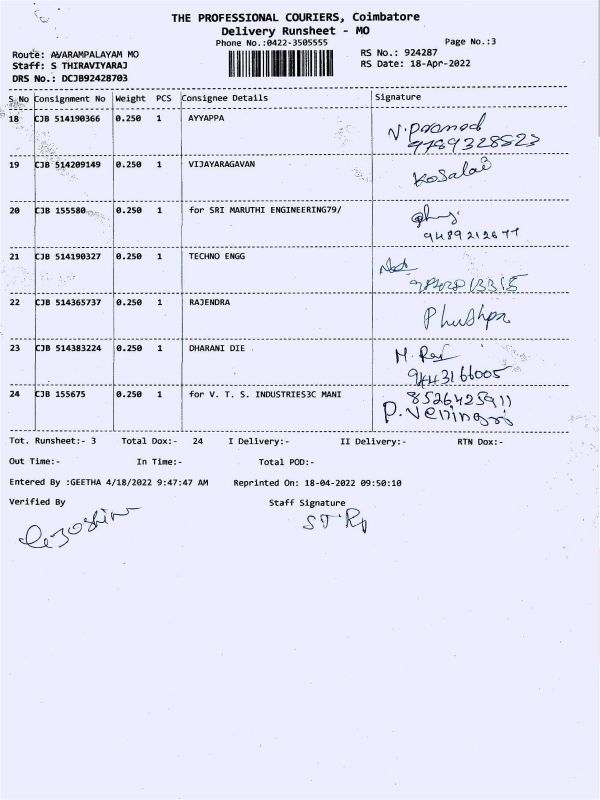 THE PROFESSIONAL COURIERS, Coimbatore
Delivery Runsheet - MO
Phone No.:0422-3505555 Page No.:3
Route: AVARAMPALAYAM MO RS No.: 924287
Staff: S THIRAVIYARAJ RS Date: 18-Apr-2022
DRS No.: DCJB92428703
S.No Consignment No Weight PCS Consignee Details Signature
18 CJB 514190366 0.250 1 AYYAPPA
19 CJB 514209149 0.250 1 VIJAYARAGAVAN Kosalai
20 CJB 155580 0.250 1 for SRI MARUTHI ENGINEERING79/
9489212677
21 CJB 514190327 0.250 1 TECHNO ENGG
22 CJB 514365737 0.250 1 RAJENDRA
Phushpa
23 CJB 514383224 0.250 1 DHARANI DIE M. Raj
9443166005
24 CJB 155675 0.250 1 for V. T. S. INDUSTRIES3C MANI 8526425911
Tot. Runsheet:- 3 Total Dox:- 24 I Delivery:- II Delivery:- RTN Dox:-
Out Time:- In Time:- Total POD:-
Entered By :GEETHA 4/18/2022 9:47:47 AM Reprinted On: 18-04-2022 09:50:10
Verified By Staff Signature